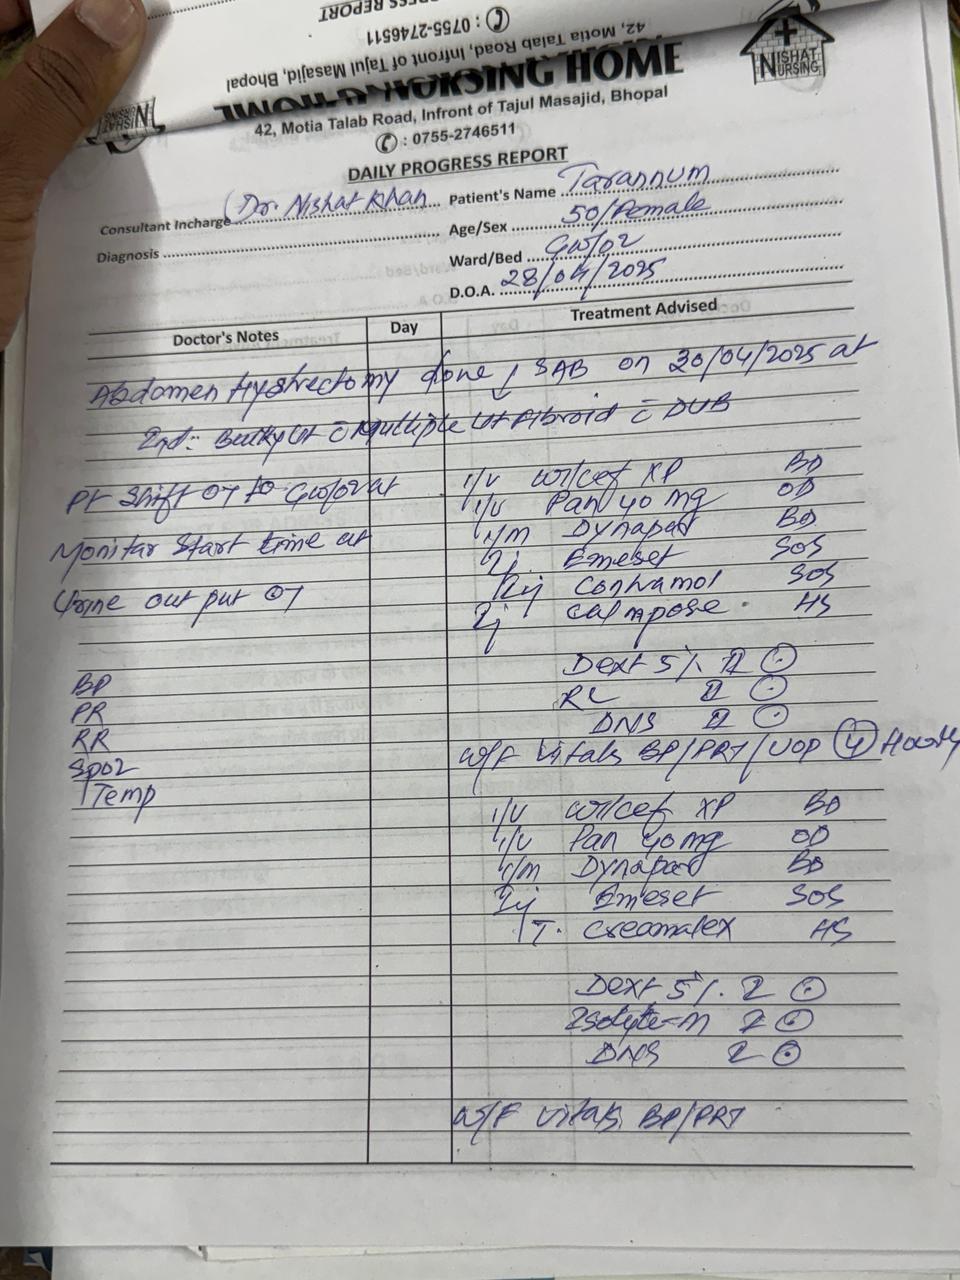 PRESS REPORT
: 0755-2746511
42, Motia Talab Road, Infront of Tajul Masajid, Bhopal
NISHAT NURSING
NURSING HOME
NISHAT NURSING
42, Motia Talab Road, Infront of Tajul Masajid, Bhopal
: 0755-2746511
DAILY PROGRESS REPORT
Consultant Incharge Dr. Nishat Khan Patient's Name Tarannum
Diagnosis Age/Sex 50/Female
Ward/Bed GW/02
D.O.A. 28/04/2025
Doctor's Notes Day Treatment Advised
Abdomen Hystrectomy done SAB on 30/04/2025 at
Ind:- Bulky Ut c̄ Multiple Ut Fibroid c̄ DUB
Pt Shift OT to GW/02 at I/V XP BD
I/V Pan 40 mg OD
Monitar Start time at I/M Dynapar BD
Inj. Emeset SOS
Urine out put OT Inj Contramol SOS
Inj Calmpose HS
BP Dext 5%. II
PR RL II
RR DNS II
SpO2 W/F Vitals BP/PRT/UOP 4 Hourly
Temp
I/V XP BD
I/V Pan 40 mg OD
I/M Dynapar BD
Inj Emeset SOS
T. HS
Dext 5%. 2
Isolyte-M 2
DNS 2
W/F Vitals BP/PRT